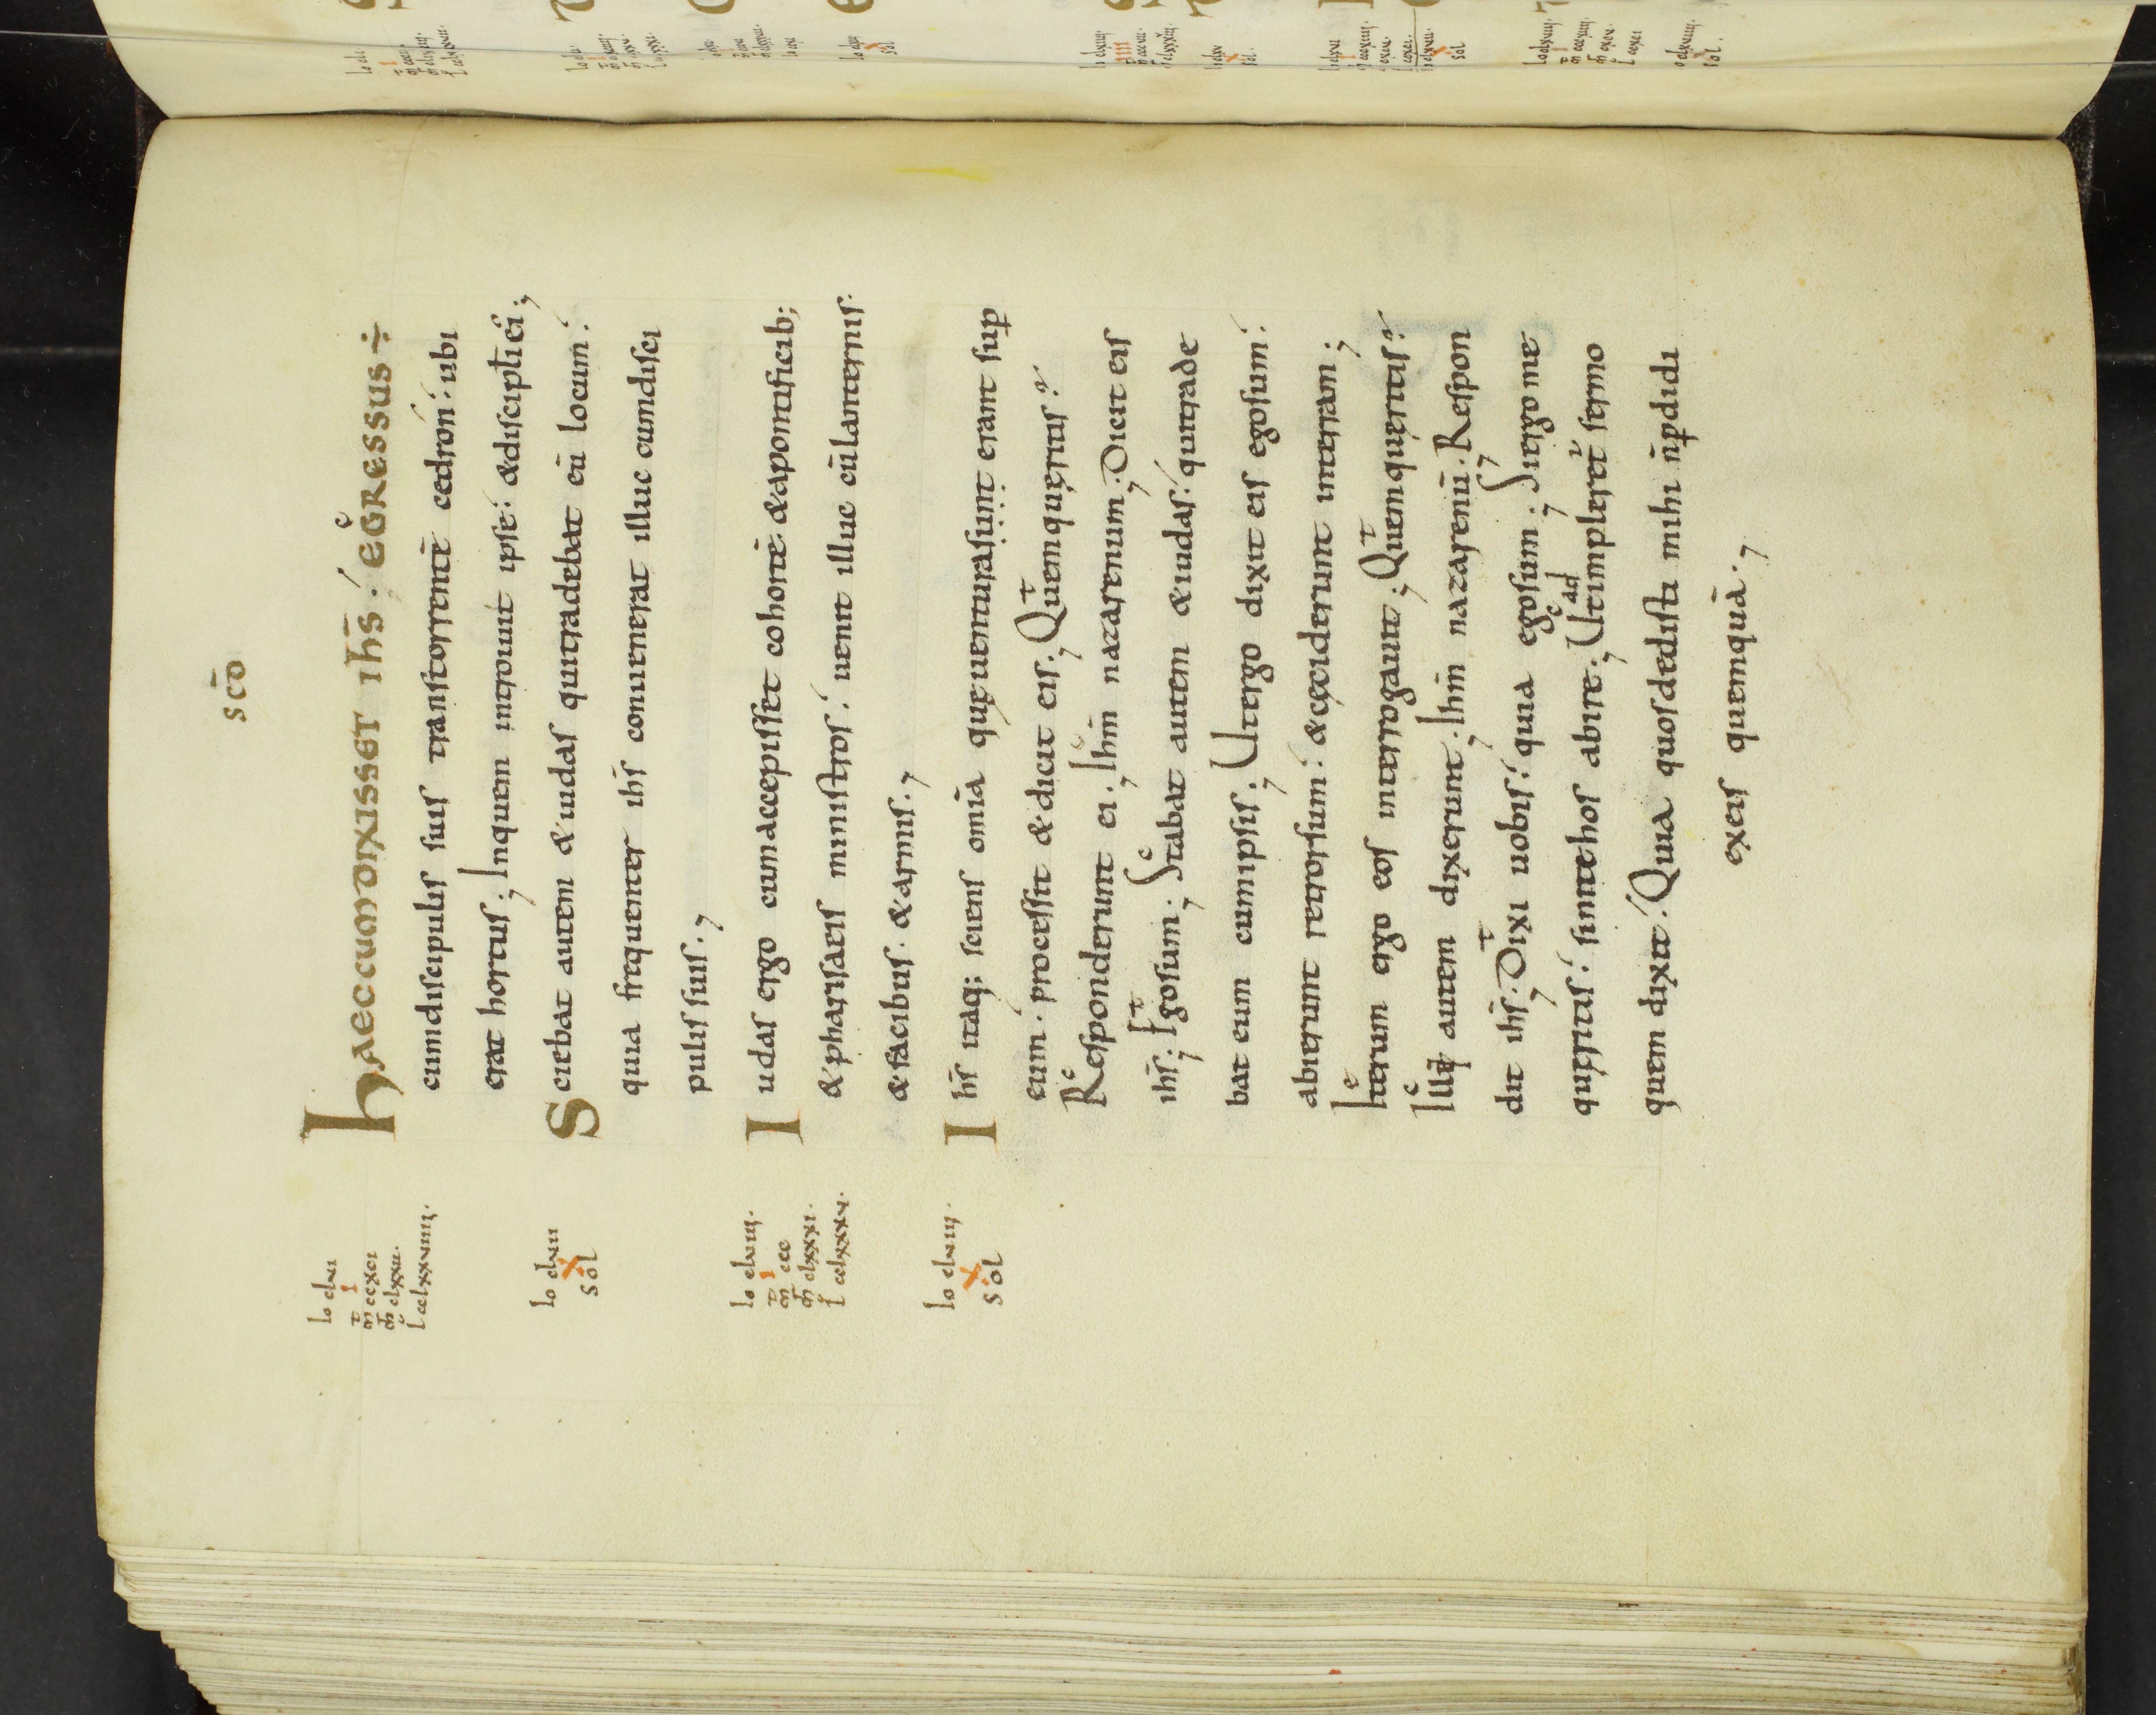 scō
haec cum dixisset ihs̄ egressus÷
cum discipulis suis trans torrentē cedron ubi
erat hortus; In quem introiuit ipse & discipli ei;
Sciebat autem & iudas qui tradebat eū locum
quia frequenter ihs̄ conuenerat illuc cum disci
pulis suis.
Iudas ergo cum accepisset cohortē & a pontificib;
& pharisaeis ministros uenit illuc cū lanternis
& facibus & armis.
Ihs̄ itaq; sciens omīa quę uentura sunt erant sup̄
eum. processit & dicit eis. Quem queritis?
Responderunt ei. Ihm̄ nazarenum. Dicit eis
ihs̄. Ego sum; Stabat autem & iudas qui trade
bat eum cum ipsis; Ut ergo dixit eis ego sum
abierunt retrorsum & ceciderunt in terram;
Iterum ergo eos interrogauit; Quem quęritis?
Illi autem dixerunt. Ihm̄ nazarenū. Respon
dit ihs̄. Dixi uobis quia ego sum; Si ergo me
quęritis sinite hos abire; Ut impleret̄ sermo
quem dixit. Quia quos dedisti mihi n̄ p̄didi
ex eis quemquā.
Io clvi
I
m̄ ccxci
m̄ clxxii.
l cclxxviiii.
Io clvii
X
sol
Io clviii.
I
m̄ ccc
m̄ clxxxi.
l cclxxxv.
Io clviiii.
X
sol